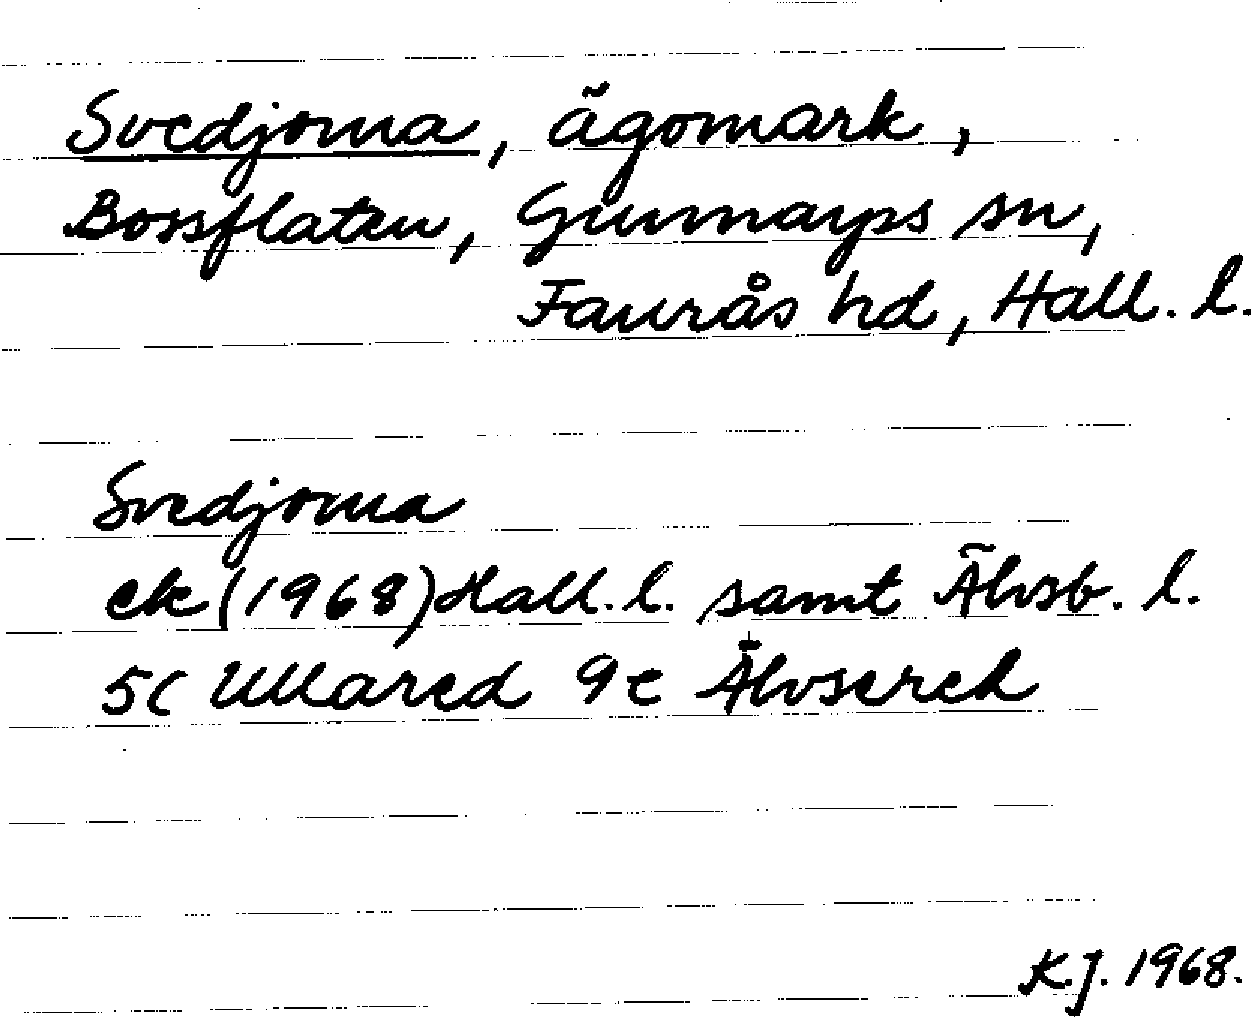 Svedjorna, ägomark,
Bossflaten, Gunnarps sn,
Faurås hd, Hall. l.
Svedjorna
ek (1968) Hall. l. samt Älvsb. l.
5c Ullared 9e Älvsered
K.J. 1968.